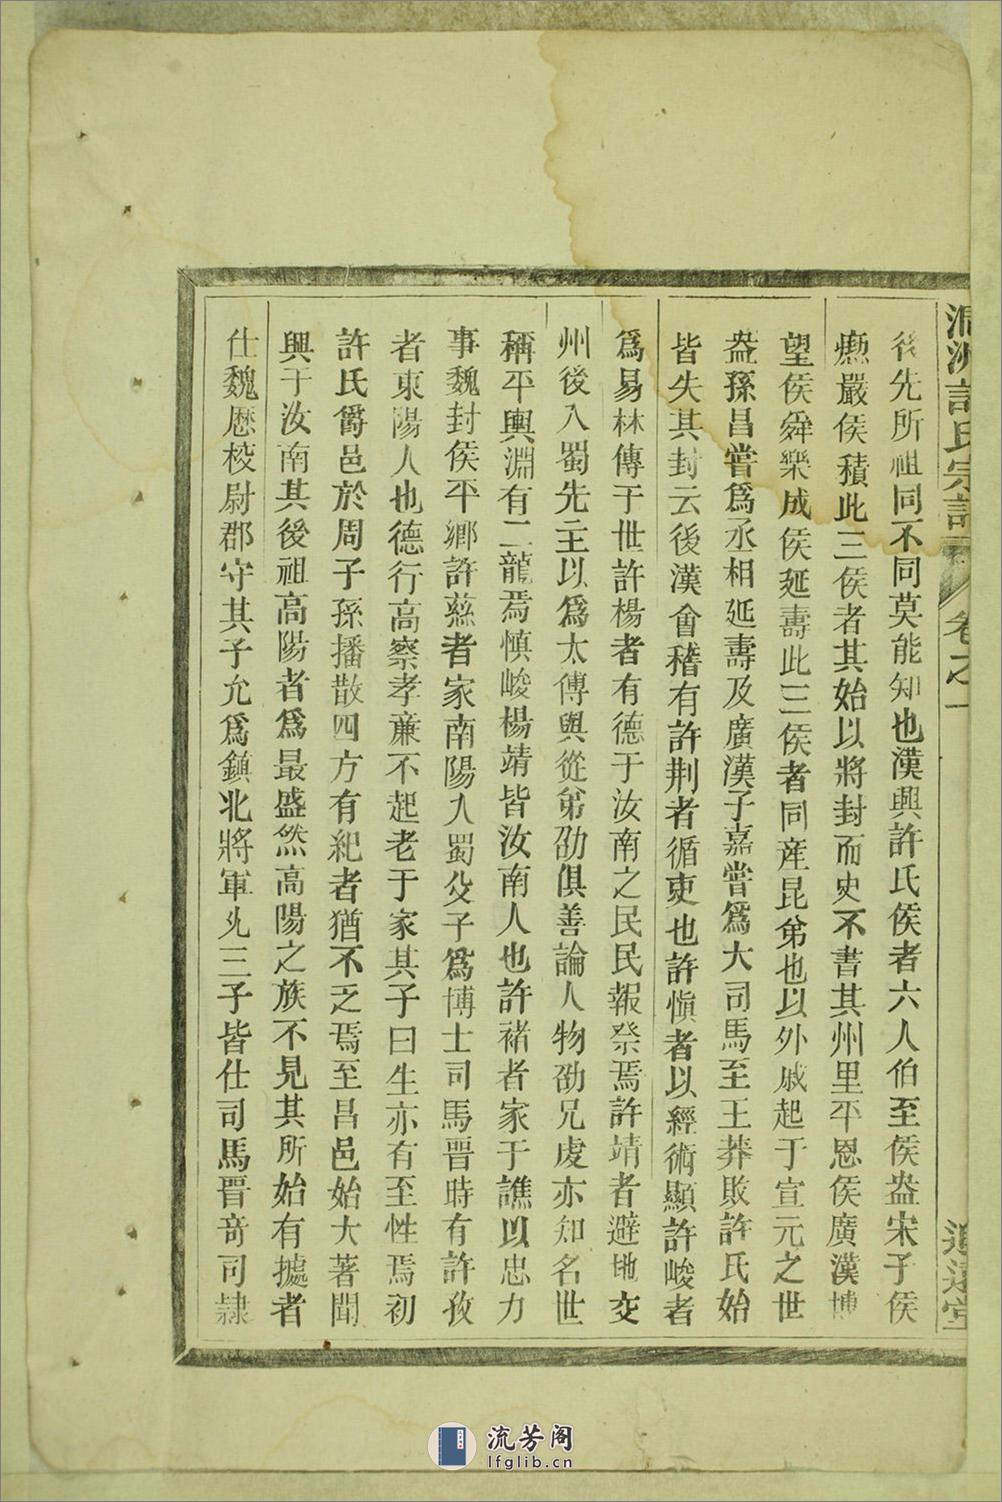 許氏宗譜 卷之一
後先所祖同不同莫能知也漢興許氏侯者六人伯至侯盎宋子侯
瘛嚴侯積此三侯者其始以將封而史不書其州里平恩侯廣漢博
望侯舜樂成侯延壽此三侯者同產昆弟也以外戚起于宣元之世
盎孫昌嘗爲丞相延壽及廣漢子嘉嘗爲大司馬至王莽敗許氏始
皆失其封云後漢會稽有許荆者循吏也許愼者以經術顯許峻者
爲易林傳于世許楊者有德于汝南之民民報祭焉許靖者避地交
州後入蜀先主以爲太傅與從弟劭俱善論人物劭兄虔亦知名世
稱平輿淵有二龍焉愼峻楊靖皆汝南人也許褚者家于譙以忠力
事魏封侯平鄉許慈者家南陽入蜀父子爲博士司馬晉時有許孜
者東陽人也德行高察孝亷不起老于家其子曰生亦有至性焉初
許氏爵邑於周子孫播散四方有紀者猶不乏焉至昌邑始大著聞
興于汝南其後祖高陽者爲最盛然高陽之族不見其所始有據者
仕魏歷校尉郡守其子允爲鎮北將軍允三子皆仕司馬晉奇司隷
流芳阁
lfglib.cn